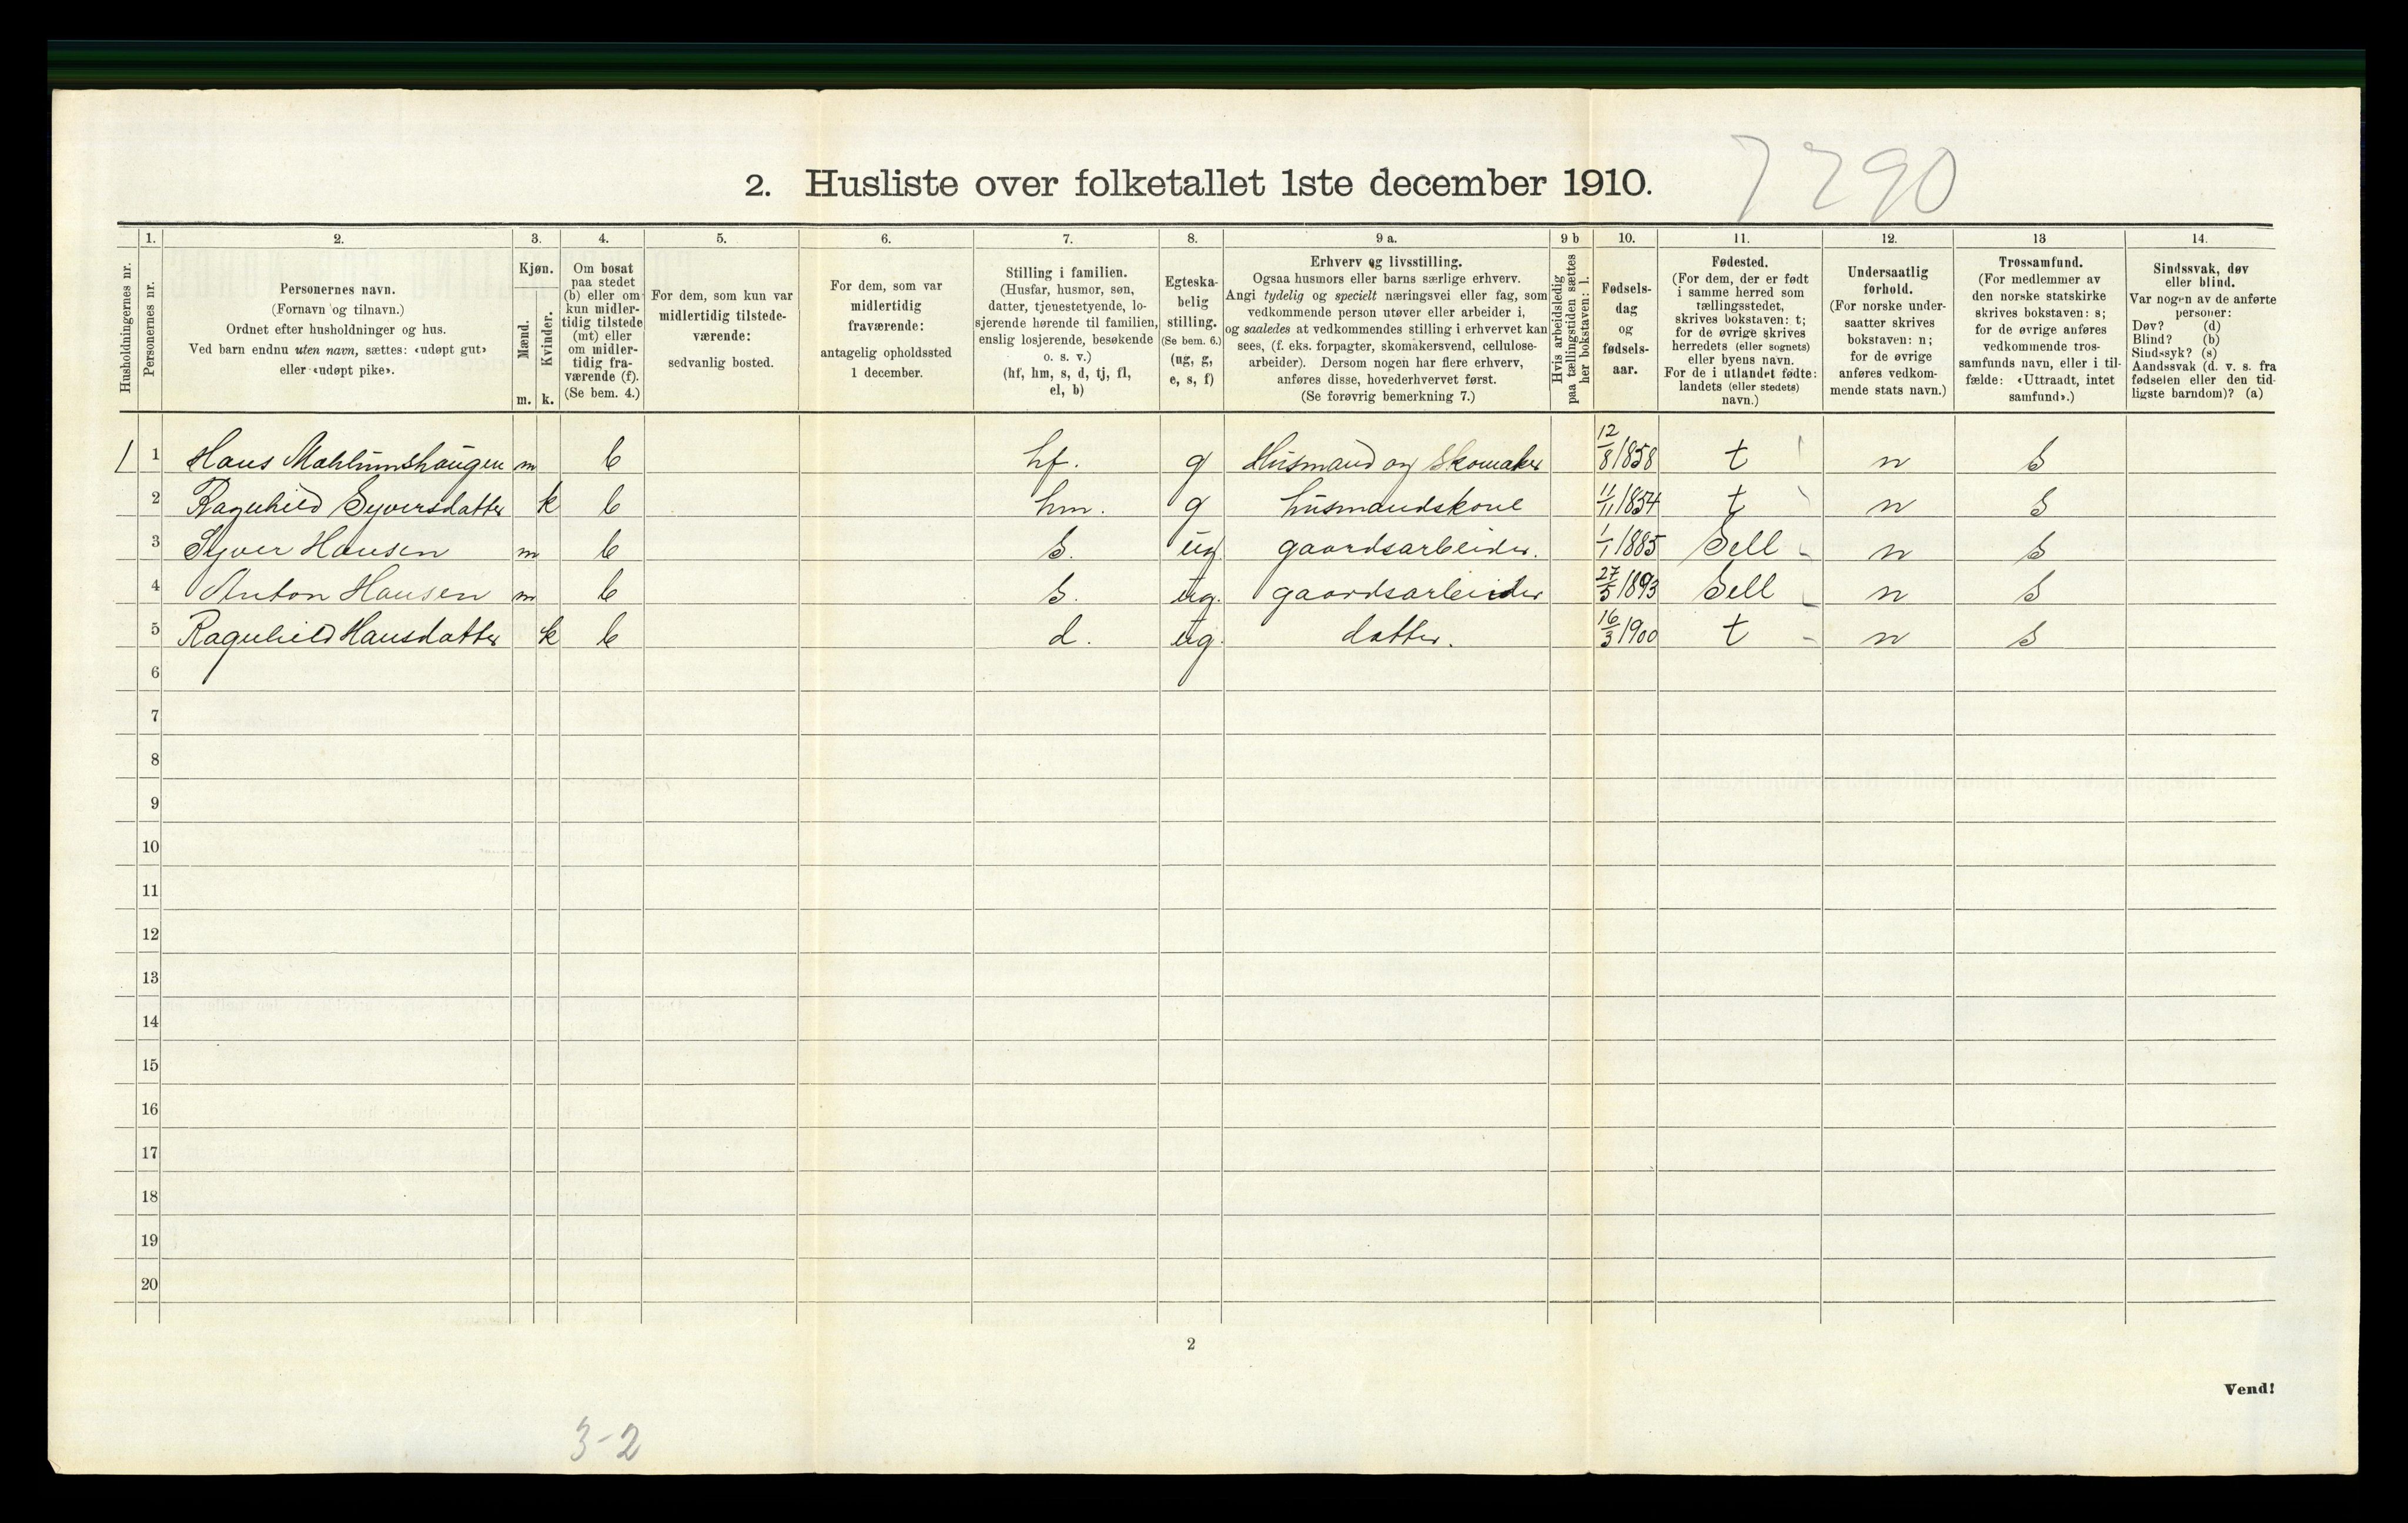 2. Husliste over folketallet 1ste december 1910.
7290
Husholdningernes nr.
1.
Personernes nr.
2.
Personernes navn.
(Fornavn og tilnavn.)
Ordnet efter husholdninger og hus.
Ved barn endnu uten navn, sættes: «udøpt gut»
eller «udøpt pike».
3.
Kjøn.
Mænd.
Kvinder.
m. k.
4.
Om bosat
paa stedet
(b) eller om
kun midler-
tidig tilstede
(mt) eller
om midler-
tidig fra-
værende (f).
(Se bem. 4.)
5.
For dem, som kun var
midlertidig tilstede-
værende:
sedvanlig bosted.
6.
For dem, som var
midlertidig
fraværende:
antagelig opholdssted
1 december.
7.
Stilling i familien.
(Husfar, husmor, søn,
datter, tjenestetyende, lo-
sjerende hørende til familien,
enslig losjerende, besøkende
o. s. v.)
(hf, hm, s, d, tj, fl,
el, b)
8.
Egteska-
belig
stilling.
(Se bem. 6.)
(ug, g,
e, s, f)
9 a.
Erhverv og livsstilling.
Ogsaa husmors eller barns særlige erhverv.
Angi tydelig og specielt næringsvei eller fag, som
vedkommende person utøver eller arbeider i,
og saaledes at vedkommendes stilling i erhvervet kan
sees, (f. eks. forpagter, skomakersvend, cellulose-
arbeider). Dersom nogen har flere erhverv,
anføres disse, hovederhvervet først.
(Se forøvrig bemerkning 7.)
9 b
Hvis arbeidsledig
paa tællingstiden sættes
her bokstaven: l.
10.
Fødsels-
dag
og
fødsels-
aar.
11.
Fødested.
(For dem, der er født
i samme herred som
tællingsstedet,
skrives bokstaven: t;
for de øvrige skrives
herredets (eller sognets)
eller byens navn.
For de i utlandet fødte:
landets (eller stedets)
navn.)
12.
Undersaatlig
forhold.
(For norske under-
saatter skrives
bokstaven: n;
for de øvrige
anføres vedkom-
mende stats navn.)
13
Trossamfund.
(For medlemmer av
den norske statskirke
skrives bokstaven: s;
for de øvrige anføres
vedkommende tros-
samfunds navn, eller i til-
fælde: «Uttraadt, intet
samfund».)
14.
Sindssvak, døv
eller blind.
Var nogen av de anførte
personer:
Døv? (d)
Blind? (b)
Sindssyk? (s)
Aandssvak (d. v. s. fra
fødselen eller den tid-
ligste barndom)? (a)
1 1 Hans Mahlumshaugen m b hf. g Husmand og Skomaker 12/8 1858 t n S
2 Ragnhild Syversdatter k b hm. g husmandskone 11/11 1854 t n S
3 Syver Hansen m b S. ug gaardsarbeider. 1/1 1885 Sell n S
4 Anton Hansen m b S. ug. gaardsarbeider 27/5 1893 Sell n S
5 Ragnhild Hansdatter k b d. ug. datter. 16/3 1900 t n S
6
7
8
9
10
11
12
13
14
15
16
17
18
19
20
2
Vend!
3-2